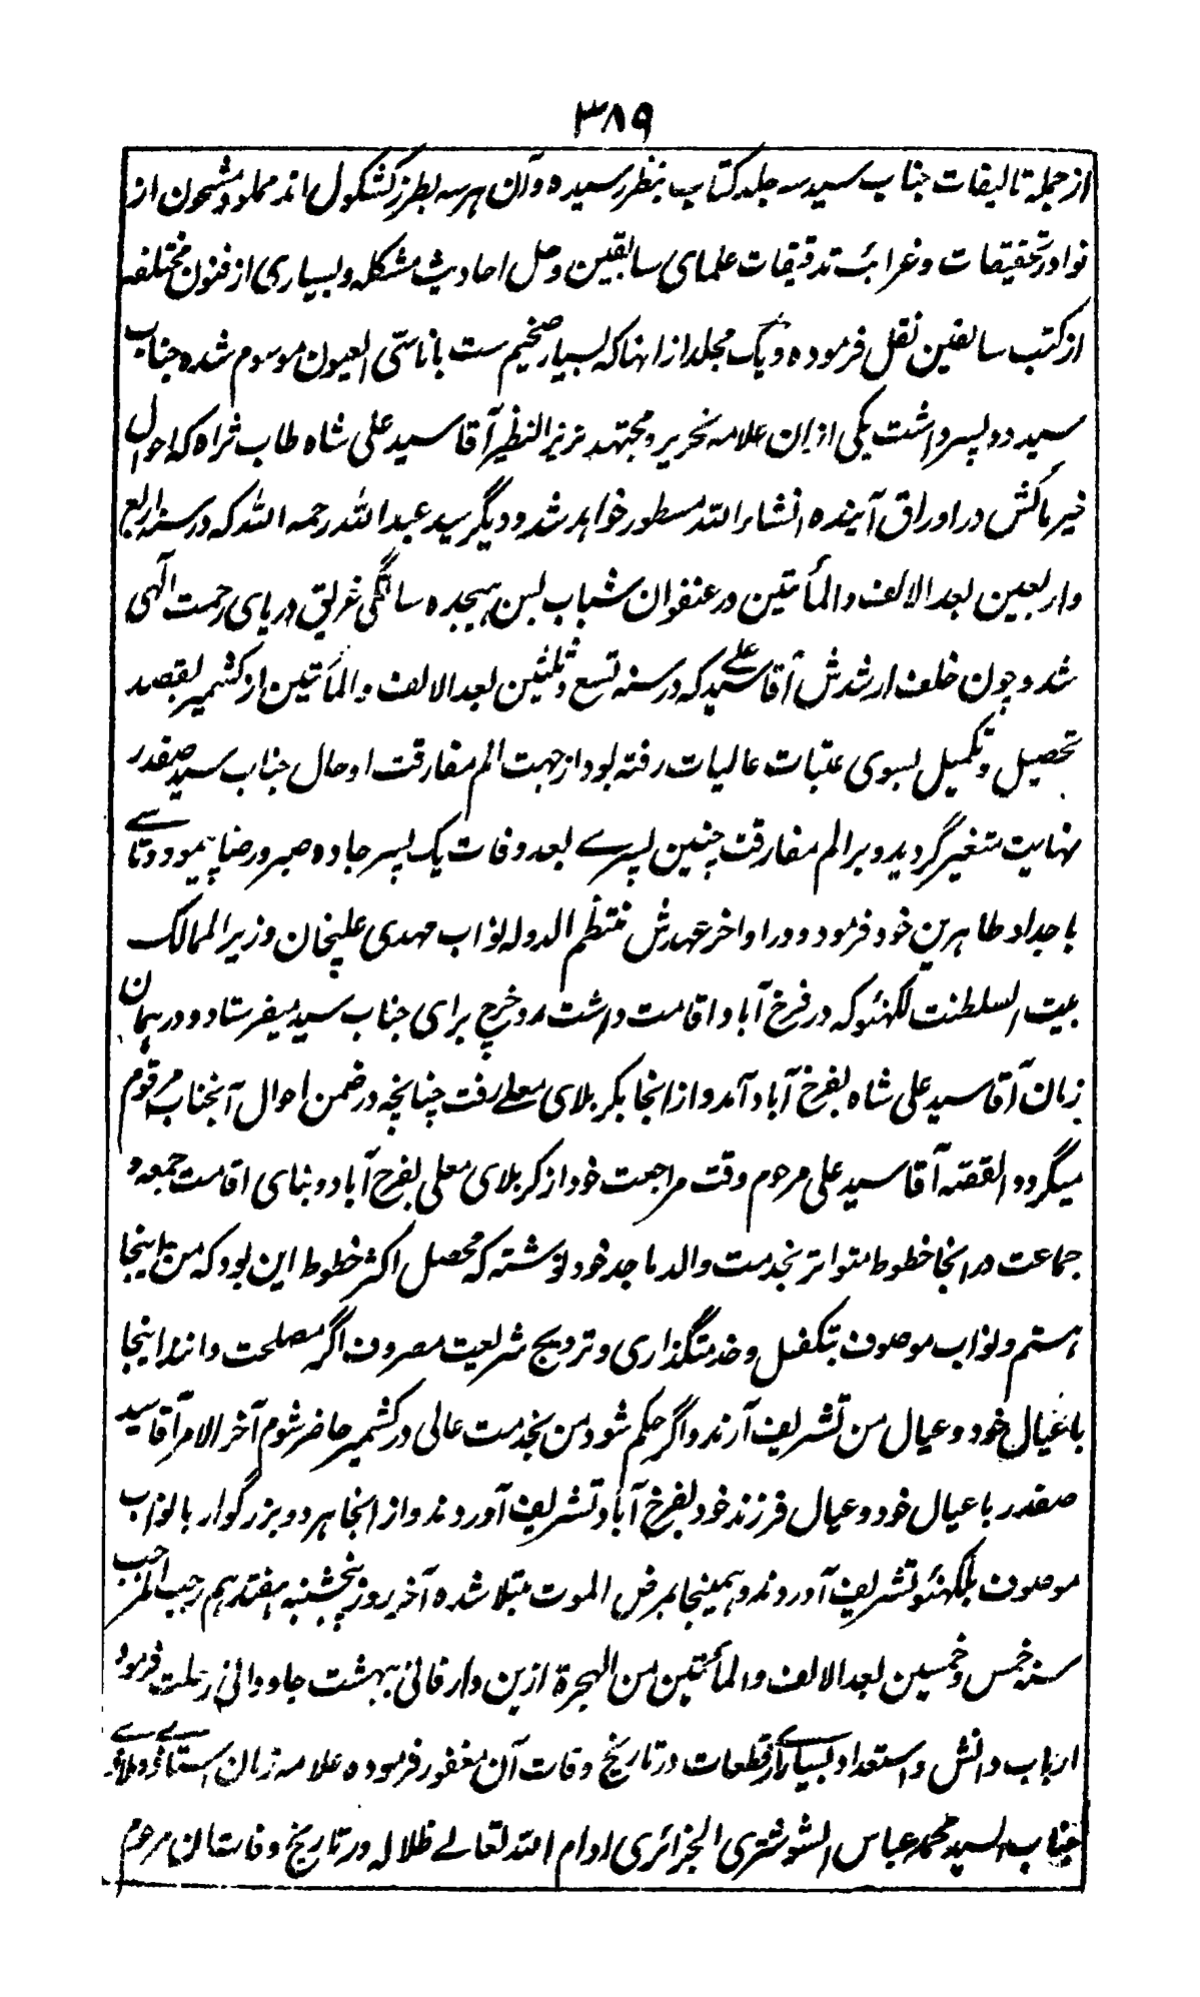 ۳۸۹
از جمله تالیفات جناب سید سه جلد کتاب بنظر رسیده و آن هر سه بطرز کشکول اند مملو و مشحون از
نوادر تحقیقات و غرائب تدقیقات علمای سابقین و حل احادیث مشکله و بسیاری از فنون مختلفه
از کتب سالفین نقل فرموده و یک مجلد ازانها که بسیار ضخیم ست باناسی العیون موسوم شده جناب
سید دو پسر داشت یکی ازان علامه نحریر و مجتهد عزیز النظیر آقا سید علی شاه طاب ثراه که احوال
خیر مآلش در اوراق آینده انشاء الله مسطور خواهد شد و دیگر سید عبد الله رحمه الله که در سنه اربع
و اربعین بعد الالف والمأتین در عنفوان شباب بسن هیجده سالگی غریق دریای رحمت الٓهی
شد و چون خلف ارشدش آقا سید علی که در سنه تسع و ثلثین بعد الالف والمأتین از کشمیر بقصد
تحصیل و تکمیل بسوی عتبات عالیات رفته بود از جهت الم مفارقت او حال جناب سید صفدر
نهایت متغیر گردید و بر الم مفارقت چنین پسرے بعد وفات یک پسر جاده صبر و رضا پیمود و تاسے
باجداد طاهرین خود فرمود و در اواخر عهدش منتظم الدوله نواب مهدی علیخان وزیر الممالک
بیت السلطنت لکهنئو که در فرخ آباد اقامت داشت مدد خرچ برای جناب سید میفرستاد و در همان
زمان آقا سید علی شاه بفرخ آباد آمد و از انجا بکربلای معلے رفت چنانچه در ضمن احوال آنجناب مرقوم
میگردد القصه آقا سید علی مرحوم وقت مراجعت خود از کربلای معلی بفرخ آباد و بنای اقامت جمعه و
جماعت در انجا خطوط متواتر بخدمت والد ماجد خود نوشته که محصل اکثر خطوط این بود که من تا اینجا
هستم و نواب موصوف بتکفل و خدمتگذاری و ترویج شریعت مصروف اگر مصلحت دانند اینجا
با عیال خود و عیال من تشریف آرند و اگر حکم شود من بخدمت عالی در کشمیر حاضر شوم آخر الامر آقا سید
صفدر با عیال خود و عیال فرزند خود بفرخ آباد تشریف آوردند و از انجا هر دو بزرگوار با نواب
موصوف بلکهنئو تشریف آوردند و همینجا بمرض الموت مبتلا شده آخر روز پنجشنبه هفتدهم رجب المرجب
سنه خمس و خمسین بعد الالف والمأتین من الهجرة ازین دار فانی ببهشت جاودانی رحلت فرمود
ارباب دانش و استعداد بسیارے از قطعات در تاریخ وفات آن مغفور فرموده علامه زمان استاذی و ملاذی
جناب السید محمد عباس الشوشتری الجزائری ادام الله تعالے ظلاله در تاریخ وفات ان مرحوم